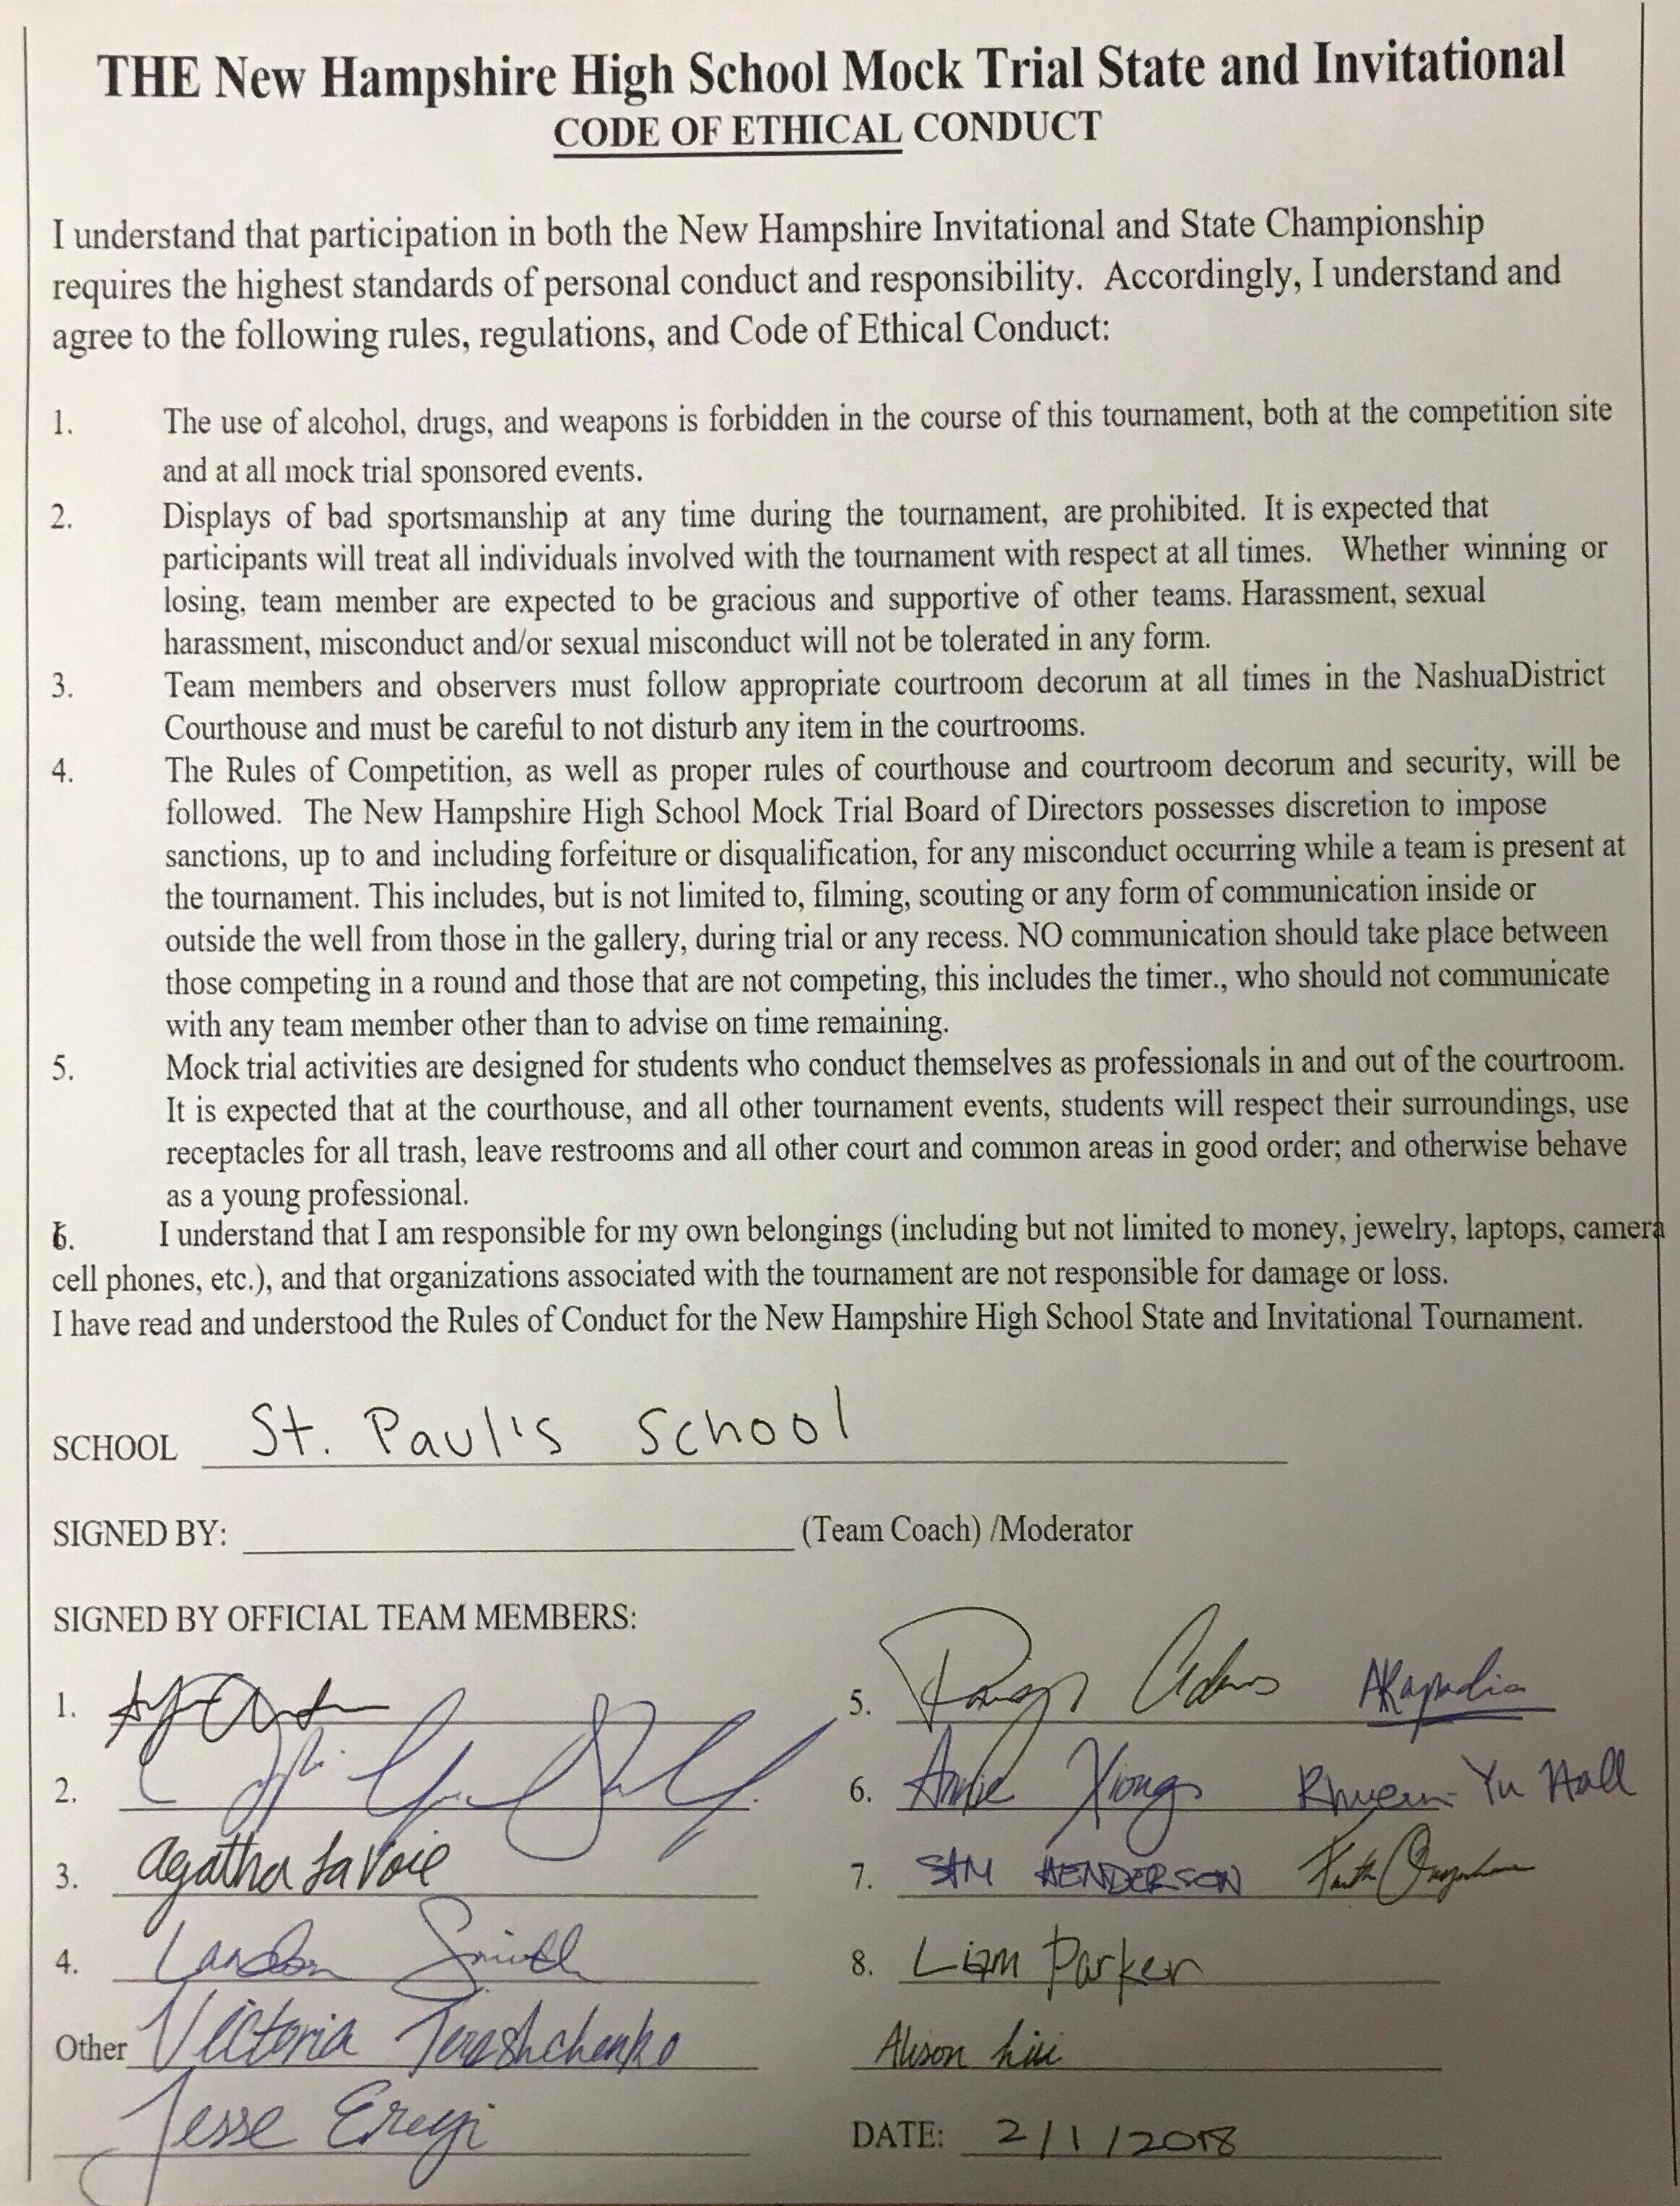 THE New Hampshire High School Mock Trial State and Invitational
CODE OF ETHICAL CONDUCT
I understand that participation in both the New Hampshire Invitational and State Championship
requires the highest standards of personal conduct and responsibility. Accordingly, I understand and
agree to the following rules, regulations, and Code of Ethical Conduct:
1. The use of alcohol, drugs, and weapons is forbidden in the course of this tournament, both at the competition site
and at all mock trial sponsored events.
2. Displays of bad sportsmanship at any time during the tournament, are prohibited. It is expected that
participants will treat all individuals involved with the tournament with respect at all times. Whether winning or
losing, team member are expected to be gracious and supportive of other teams. Harassment, sexual
harassment, misconduct and/or sexual misconduct will not be tolerated in any form.
3. Team members and observers must follow appropriate courtroom decorum at all times in the NashuaDistrict
Courthouse and must be careful to not disturb any item in the courtrooms.
4. The Rules of Competition, as well as proper rules of courthouse and courtroom decorum and security, will be
followed. The New Hampshire High School Mock Trial Board of Directors possesses discretion to impose
sanctions, up to and including forfeiture or disqualification, for any misconduct occurring while a team is present at
the tournament. This includes, but is not limited to, filming, scouting or any form of communication inside or
outside the well from those in the gallery, during trial or any recess. NO communication should take place between
those competing in a round and those that are not competing, this includes the timer., who should not communicate
with any team member other than to advise on time remaining.
5. Mock trial activities are designed for students who conduct themselves as professionals in and out of the courtroom.
It is expected that at the courthouse, and all other tournament events, students will respect their surroundings, use
receptacles for all trash, leave restrooms and all other court and common areas in good order; and otherwise behave
as a young professional.
6. I understand that I am responsible for my own belongings (including but not limited to money, jewelry, laptops, camera
cell phones, etc.), and that organizations associated with the tournament are not responsible for damage or loss.
I have read and understood the Rules of Conduct for the New Hampshire High School State and Invitational Tournament.
SCHOOL St. Paul's School
SIGNED BY: (Team Coach) /Moderator
SIGNED BY OFFICIAL TEAM MEMBERS:
1.
2.
3. Agatha LaVoie
4. Landon Smith
Other Victoria Tereshchenko
Jesse
5. AKapadia
6. Annie Xiong Yu Hall
7. SAM HENDERSON Faith
8. Liam Parker
Alison Liu
DATE: 2/1/2018